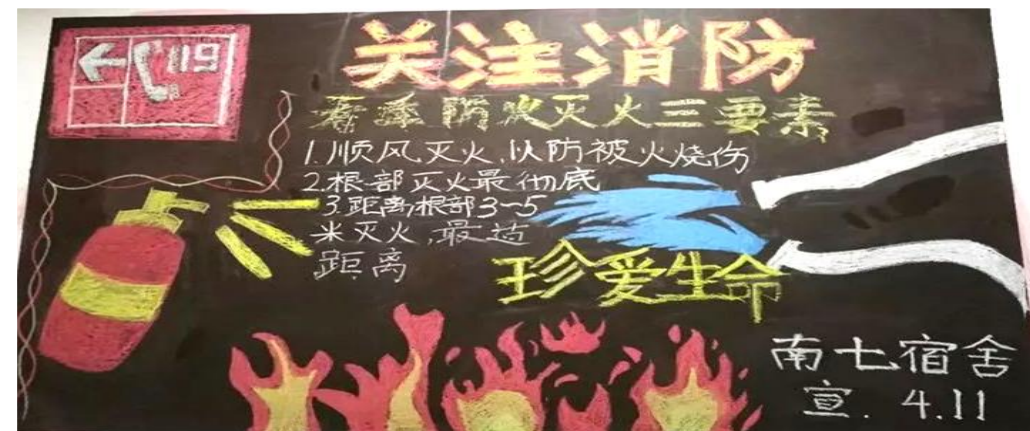 119
关注消防
春季防火灭火三要素
1.顺风灭火,以防被火烧伤
2.根部灭火最彻底
3.距离根部3~5
米灭火,最适
距离
珍爱生命
南七宿舍
宣. 4.11